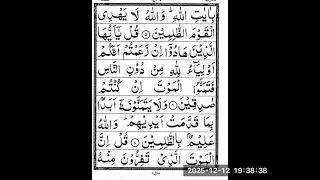 بِاٰيٰتِ اللّٰهِ ؕ وَ اللّٰهُ لَا يَهْدِى
الْقَوْمَ الظّٰلِمِيْنَ ۝۵ قُلْ يٰۤاَيُّهَا
الَّذِيْنَ هَادُوْۤا اِنْ زَعَمْتُمْ اَنَّكُمْ
اَوْلِيَآءُ لِلّٰهِ مِنْ دُوْنِ النَّاسِ
فَتَمَنَّوُا الْمَوْتَ اِنْ كُنْتُمْ
صٰدِقِيْنَ ۝۶ وَ لَا يَتَمَنَّوْنَهٗۤ اَبَدًۢا
بِمَا قَدَّمَتْ اَيْدِيْهِمْ ؕ وَ اللّٰهُ
عَلِيْمٌۢ بِالظّٰلِمِيْنَ ۝۷ قُلْ اِنَّ
الْمَوْتَ الَّذِىْ تَفِرُّوْنَ مِنْهُ
2025-12-12 19:38:38